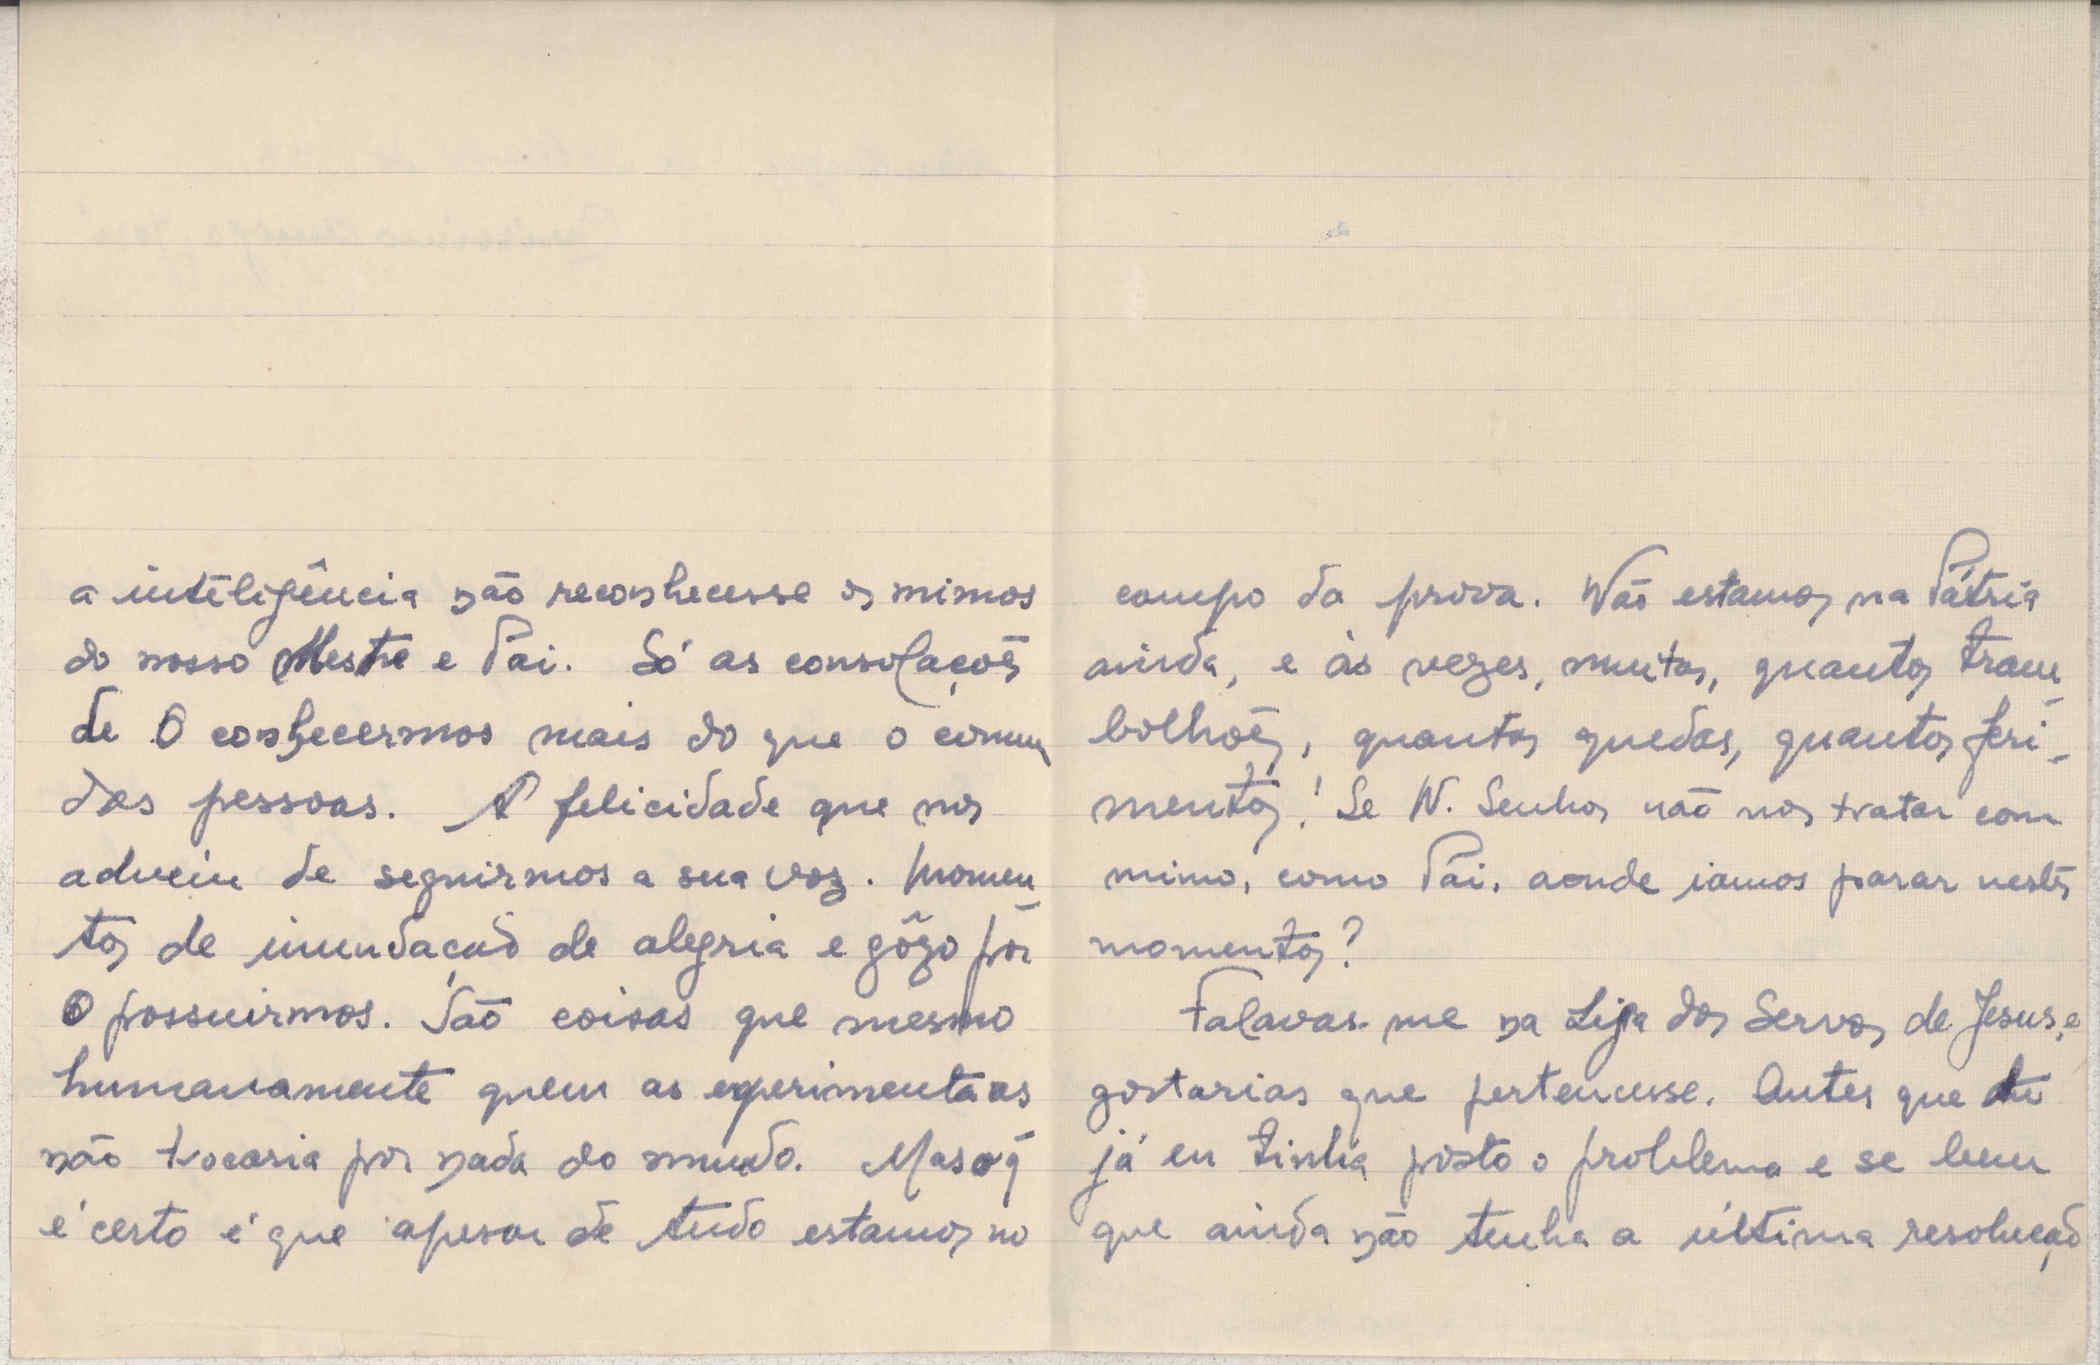 a inteligência não reconhecesse os mimos
do nosso Mestre e Pai. Só as consolações
de O conhecermos mais do que o comum
das pessoas. A felicidade que nos
advem de seguirmos a sua voz. Momen
tos de inundação de alegria e gôzo por
O possuirmos. São coisas que mesmo
humanamente quem as experimenta as
não trocaria por nada do mundo. Mas o q
é certo é que apesar de tudo estamos no
campo da prova. Não estamos na Pátria
ainda, e às vezes, muitas, quantos tram
bolhões, quantas quedas, quantos feri-
mentos! Se N. Senhor não nos tratar com
mimo, como Pai, aonde iamos parar nestes
momentos?
Falavas-me na Liga dos Servos de Jesus, e
gostarias que pertencesse. Antes que tu
já eu tinha posto o problema e se bem
que ainda não tenha a última resolução